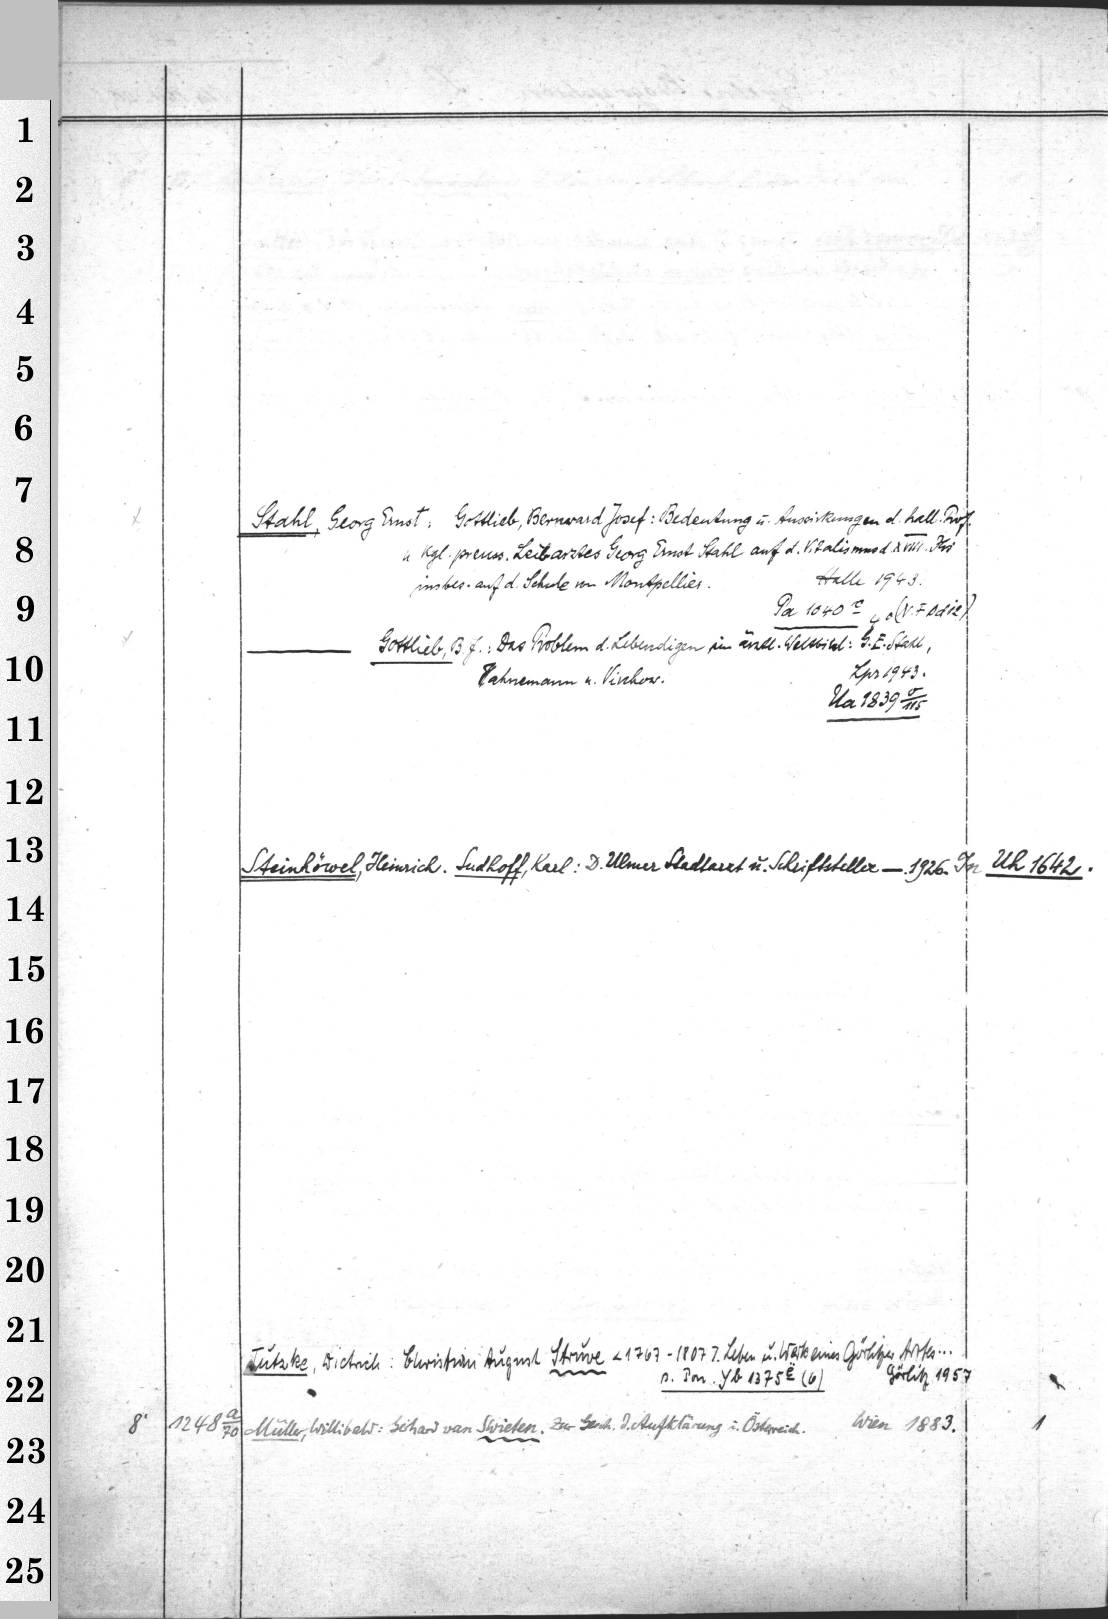 1
2
3
4
5
6
7
Stahl, Georg Ernst: Gottlieb, Bernward Josef: Bedeutung u. Auswirkungen d. hall. Prof.
8
u Kgl. preuss. Leibarztes Georg Ernst Stahl auf d. Vitalismus d. XVIII. Jhs
insbes. auf d. Schule von Montpellier. Halle 1943.
9
Pa 1040
Gottlieb, B. J.: Das Problem d. Lebendigen im ärztl. Weltbild: G. E. Stahl,
10
Hahnemann u. Virchow. Lpz 1943.
Ua 1839 σ/115
11
12
13
Steinhöwel, Heinrich. Sudhoff, Karl: D. Ulmer Stadtarzt u. Schriftsteller —. 1926. In Uh 1642.
14
15
16
17
18
19
20
21
Tutzke, Dietrich: Christian August Struve <1767-1807>. Leben u. Werk eines Görlitzer Arztes...
22
s. Pon. Yb 1375 (6) Görlitz 1957
8° 1248 a/70 Müller, Willibald: Gerhard van Swieten. Zur Gesch. d. Aufklärung i. Österreich. Wien 1883. 1
23
24
25